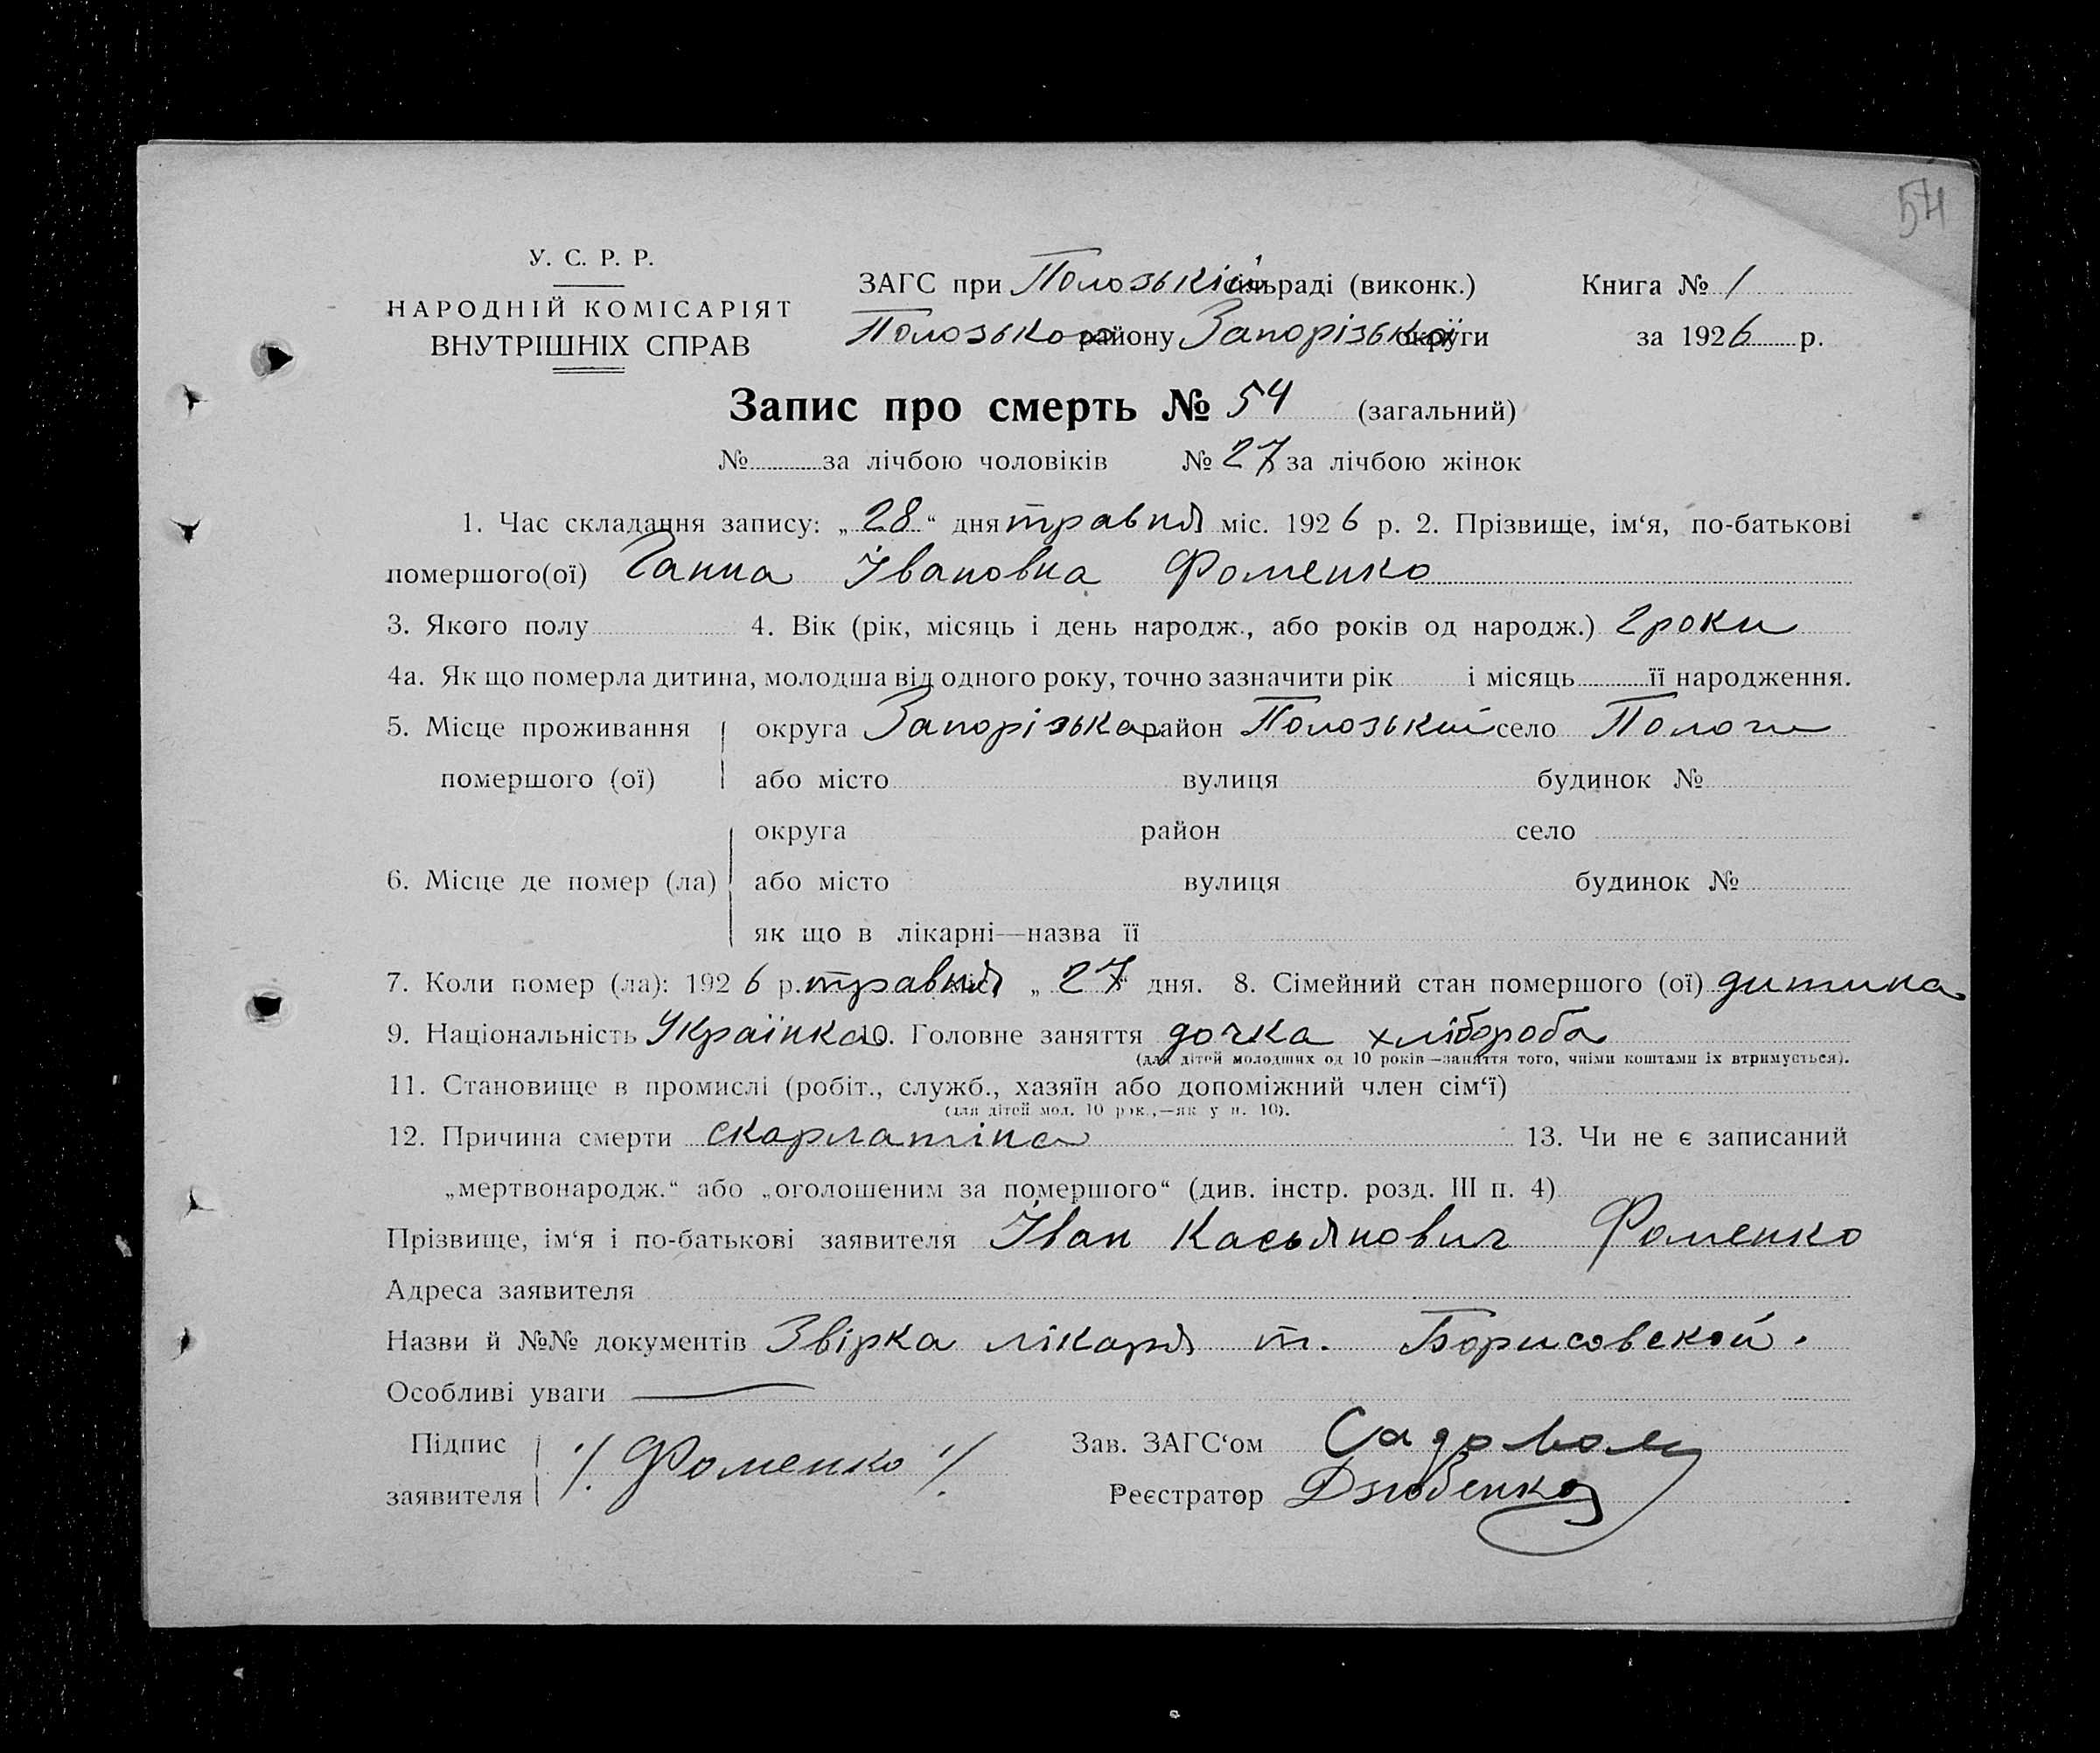 54
У. С. Р. Р.
НАРОДНІЙ КОМІСАРІЯТ
ВНУТРІШНІХ СПРАВ
ЗАГС при Полозькій сільраді (виконк.)
Полозького району Запорізької округи
Книга № 1
за 1926 р.
Запис про смерть № 54 (загальний)
№ за лічбою чоловіків № 27 за лічбою жінок
1. Час складання запису: „28“ дня травня міс. 1926 р. 2. Прізвище, ім‘я, по-батькові
помершого(ої) Ганна Івановна Фоменко
3. Якого полу 4. Вік (рік, місяць і день народж., або років од народж.) 2 роки
4а. Як що померла дитина, молодша від одного року, точно зазначити рік і місяць її народження.
5. Місце проживання округа Запорізька район Полозький село Пологи
помершого (ої) або місто вулиця будинок №
округа район село
6. Місце де помер (ла) або місто вулиця будинок №
як що в лікарні—назва її
7. Коли помер (ла): 1926 р. травня „27“ дня. 8. Сімейний стан помершого (ої) дитина
9. Національність Українка 10. Головне заняття дочка хлібороба
(для дітей молодших од 10 років—заняття того, чиїми коштами їх втримується).
11. Становище в промислі (робіт., служб., хазяїн або допоміжний член сім‘ї)
(для дітей мол. 10 рок.,—як у п. 10).
12. Причина смерти скарлатіна 13. Чи не є записаний
„мертвонародж.“ або „оголошеним за помершого“ (див. інстр. розд. III п. 4)
Прізвище, ім‘я і по-батькові заявителя Іван Касьянович Фоменко
Адреса заявителя
Назви й №№ документів Звірка лікаря т. Борисовской.
Особливі уваги
Підпис
заявителя ·/. Фоменко ·/.
Зав. ЗАГС‘ом
Реєстратор Дзюбенко